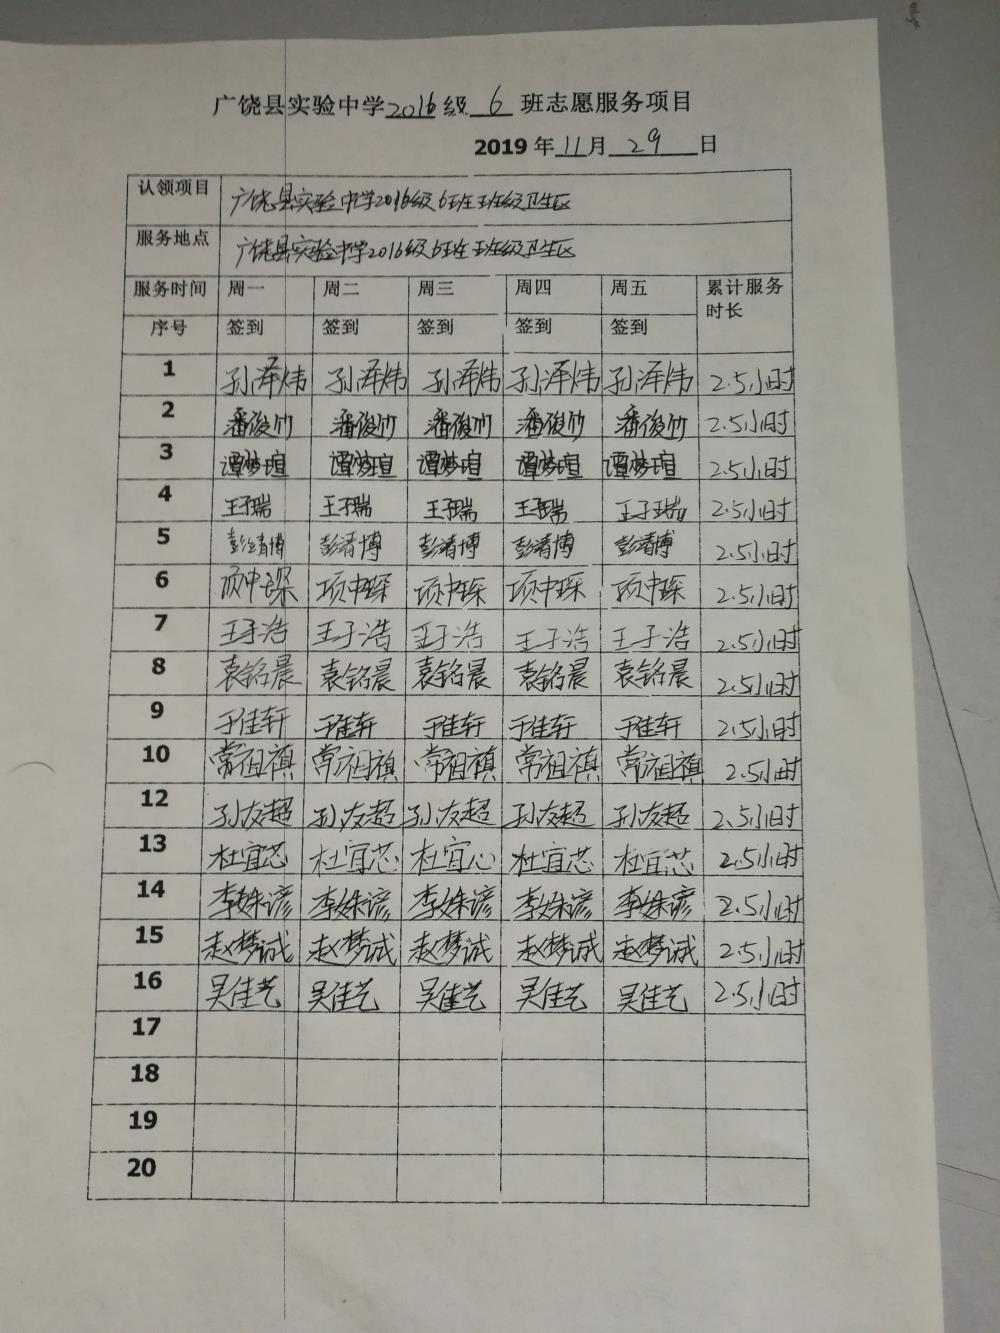 广饶县实验中学2016级 6 班志愿服务项目
2019 年 11 月 29 日
认领项目 广饶县实验中学2016级6班班级卫生区
服务地点 广饶县实验中学2016级6班班级卫生区
服务时间 周一 周二 周三 周四 周五 累计服务时长
序号 签到 签到 签到 签到 签到
1 孙泽炜 孙泽炜 孙泽炜 孙泽炜 孙泽炜 2.5小时
2 潘俊竹 潘俊竹 潘俊竹 潘俊竹 潘俊竹 2.5小时
3 谭梦瑄 谭梦瑄 谭梦瑄 谭梦瑄 谭梦瑄 2.5小时
4 王子瑞 王子瑞 王子瑞 王子瑞 王子瑞 2.5小时
5 彭靖博 彭靖博 彭靖博 彭靖博 彭靖博 2.5小时
6 项中琛 项中琛 项中琛 项中琛 项中琛 2.5小时
7 王子浩 王子浩 王子浩 王子浩 王子浩 2.5小时
8 袁铭晨 袁铭晨 袁铭晨 袁铭晨 袁铭晨 2.5小时
9 于佳轩 于佳轩 于佳轩 于佳轩 于佳轩 2.5小时
10 常祖禛 常祖禛 常祖禛 常祖禛 常祖禛 2.5小时
12 孙友超 孙友超 孙友超 孙友超 孙友超 2.5小时
13 杜宜芯 杜宜芯 杜宜心 杜宜芯 杜宜芯 2.5小时
14 李姝谚 李姝谚 李姝谚 李姝谚 李姝谚 2.5小时
15 赵梦诚 赵梦诚 赵梦诚 赵梦诚 赵梦诚 2.5小时
16 吴佳艺 吴佳艺 吴佳艺 吴佳艺 吴佳艺 2.5小时
17
18
19
20